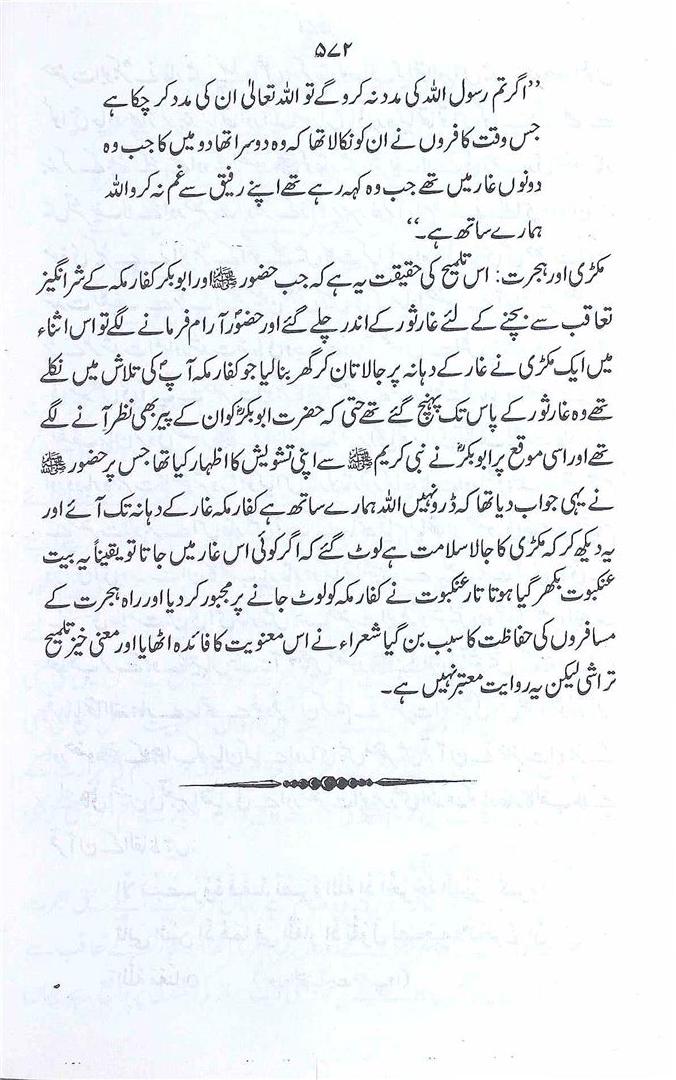 ۵۷۲
”اگر تم رسول اللہ کی مدد نہ کرو گے تو اللہ تعالیٰ ان کی مدد کر چکا ہے
جس وقت کافروں نے ان کو نکالا تھا کہ وہ دوسرا تھا دو میں کا جب وہ
دونوں غار میں تھے جب وہ کہہ رہے تھے اپنے رفیق سے غم نہ کرو اللہ
ہمارے ساتھ ہے۔“
مکڑی اور ہجرت: اس تلمیح کی حقیقت یہ ہے کہ جب حضور ﷺ اور ابو بکر کفار مکہ کے شر انگیز
تعاقب سے بچنے کے لئے غار ثور کے اندر چلے گئے اور حضورؐ آرام فرمانے لگے تو اس اثناء
میں ایک مکڑی نے غار کے دہانہ پر جالا تان کر گھر بنا لیا جو کفار مکہ آپؐ کی تلاش میں نکلے
تھے وہ غار ثور کے پاس تک پہنچ گئے تھے حتی کہ حضرت ابو بکرؓ کو ان کے پیر بھی نظر آنے لگے
تھے اور اسی موقع پر ابو بکرؓ نے نبی کریم ﷺ سے اپنی تشویش کا اظہار کیا تھا جس پر حضور ﷺ
نے یہی جواب دیا تھا کہ ڈرو نہیں اللہ ہمارے ساتھ ہے کفار مکہ غار کے دہانہ تک آئے اور
یہ دیکھ کر کہ مکڑی کا جالا سلامت ہے لوٹ گئے کہ اگر کوئی اس غار میں جاتا تو یقیناً یہ بیت
عنکبوت بکھر گیا ہوتا تار عنکبوت نے کفار مکہ کو لوٹ جانے پر مجبور کر دیا اور راہ ہجرت کے
مسافروں کی حفاظت کا سبب بن گیا شعراء نے اس معنویت کا فائدہ اٹھایا اور معنی خیز تلمیح
تراشی لیکن یہ روایت معتبر نہیں ہے۔